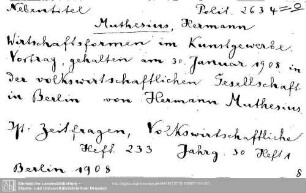 Nebentitel Polit. 2634
Muthesius, Hermann
Wirtschaftsformen im Kunstgewerbe.
Vortrag, gehalten am 30. Januar 1908 in
der volkswirtschaftlichen Gesellschaft
in Berlin von Hermann Muthesius.
Zeitfragen, Volkswirtschaftliche
Heft 233 Jahrg. 30 Heft 1
Berlin 1908